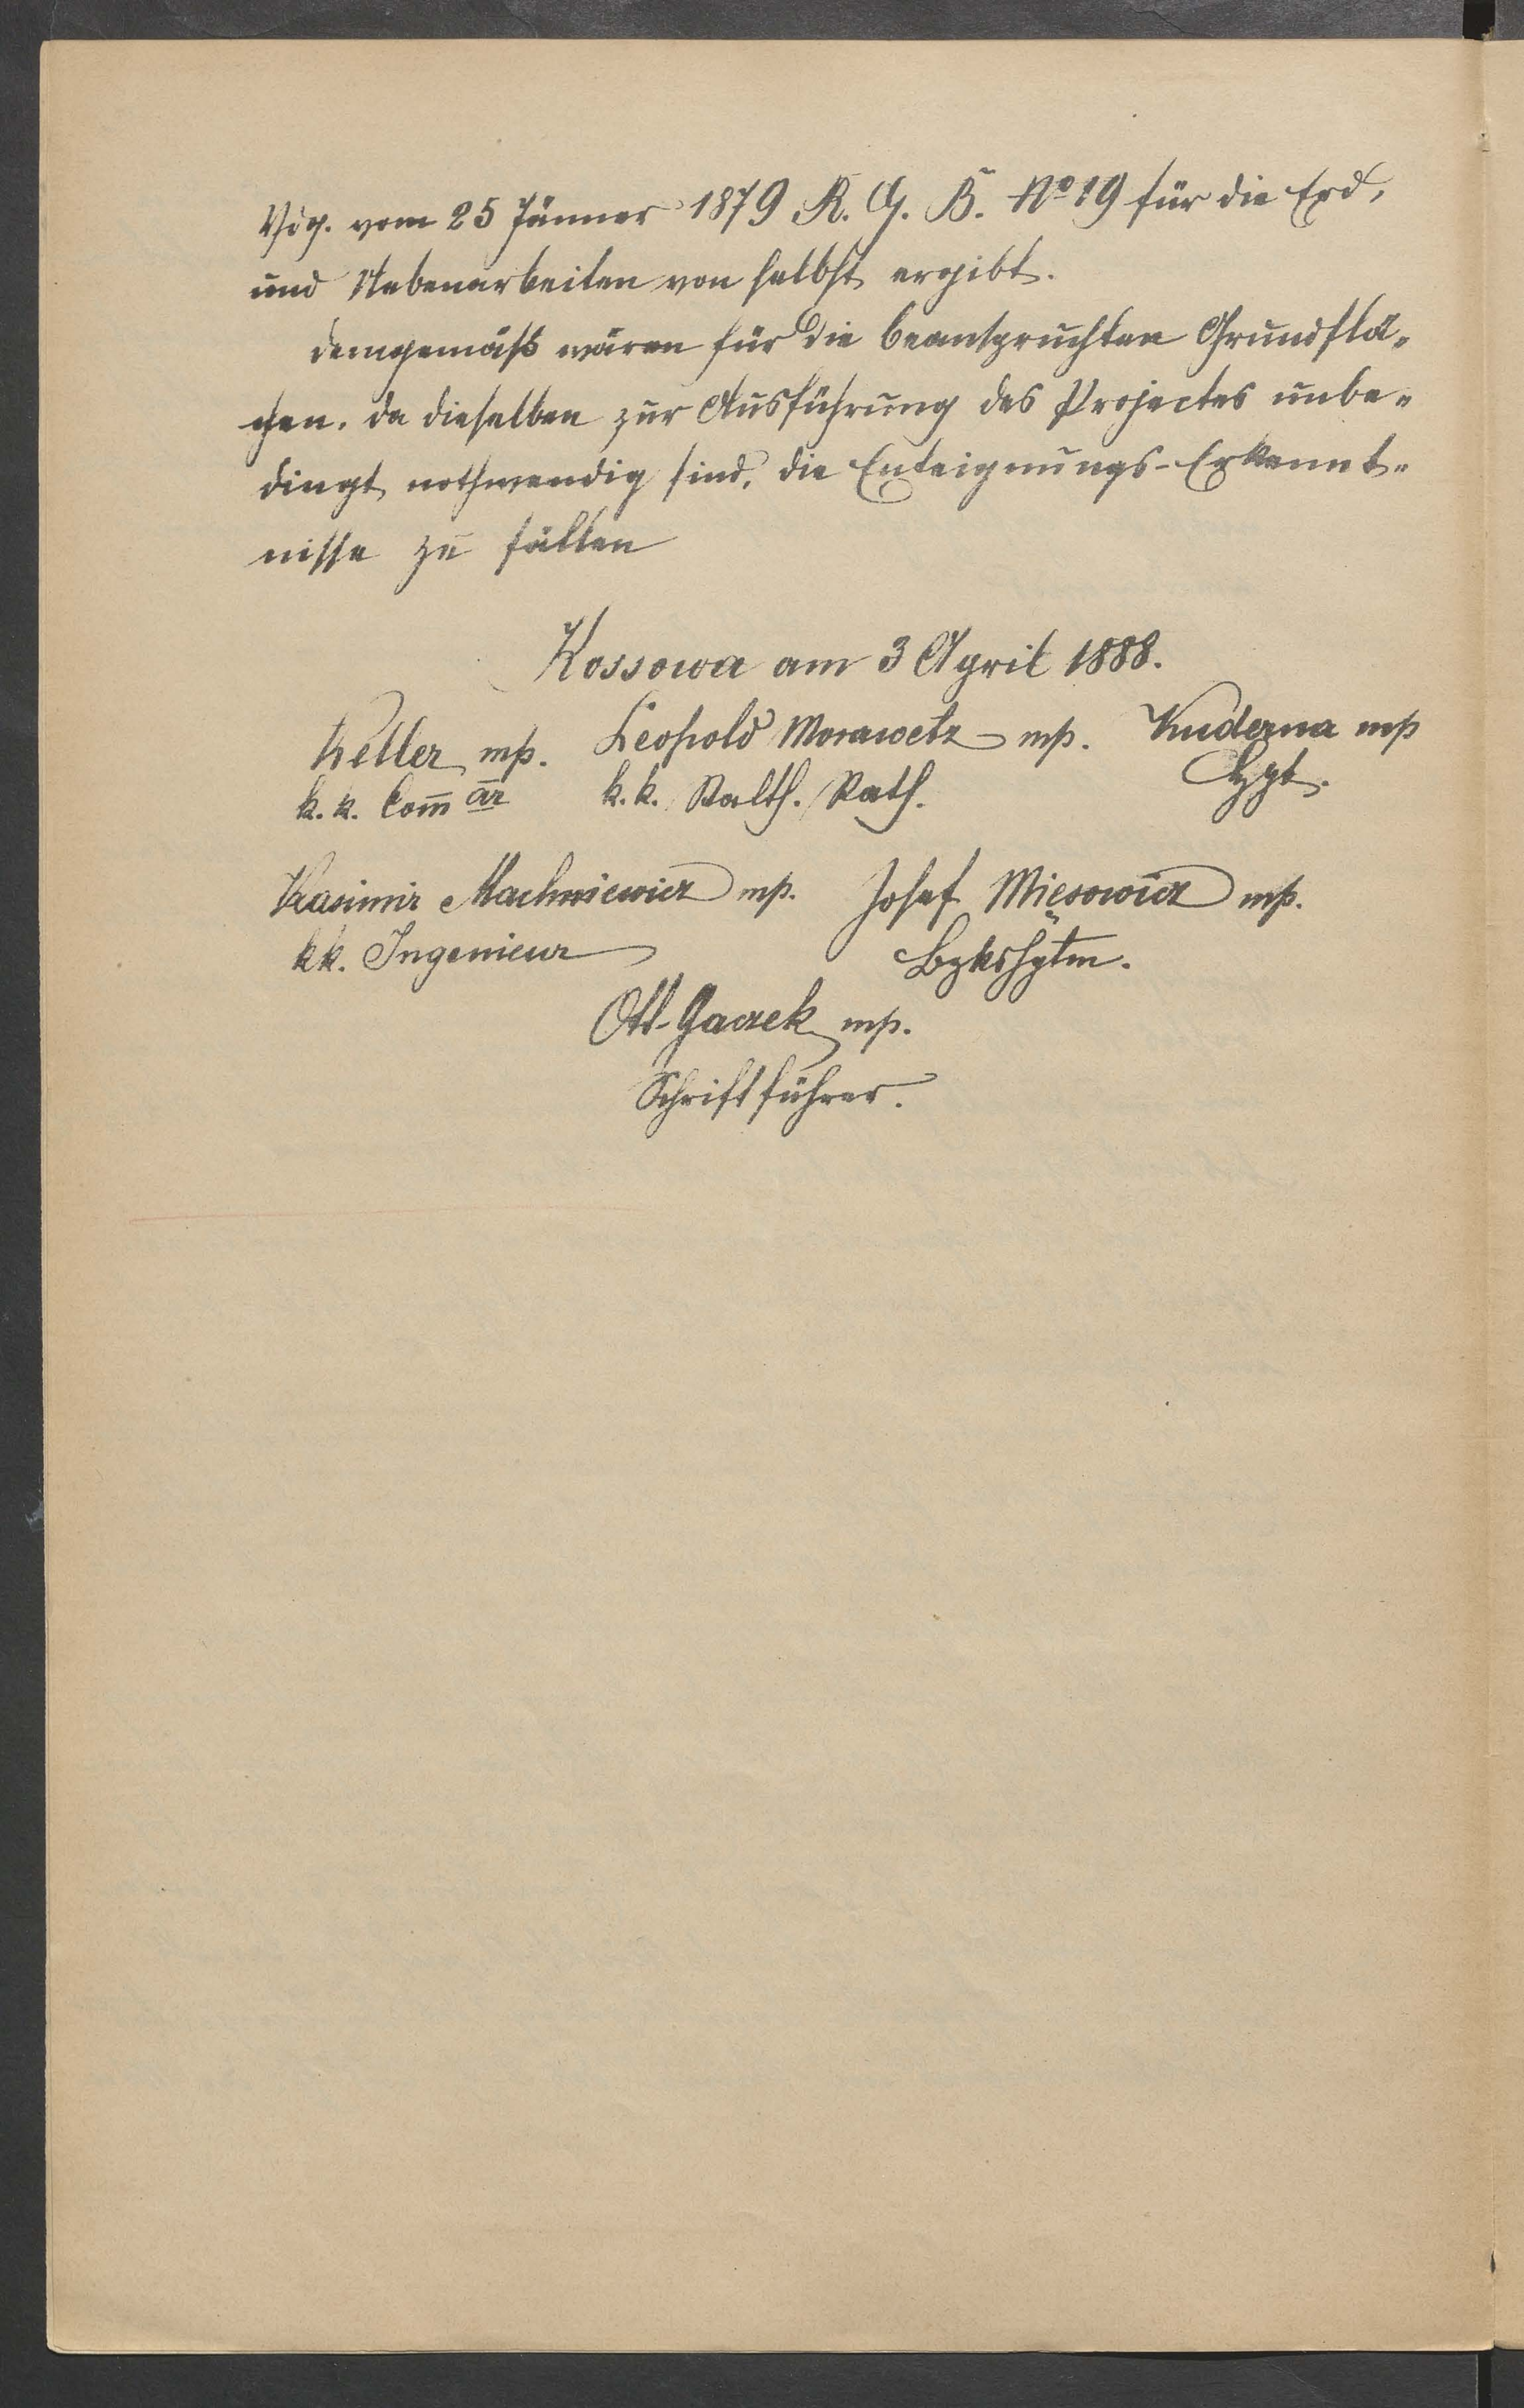 Vdg. vom 25 Jänner 1879 R. G. B. No 19 für die Erd,
und Nebenarbeiten von selbst ergibt.
demgemäß wären für die beanspruchten Grundflä-
chen, da dieselben zur Ausführung des Projectes unbe-
dingt nothwendig sind, die Enteignungs-Erkennt-
nisse zu fällen
Kossowa am 3 April 1888.
Keller mp. Leopold Morawetz mp. Kuderna mp
k. k. Comār k. k. Statth. Rath. Hpt.
Kasimir Machniewicz mp. Josef Mięsowicz mp.
kk. Ingenieur Bzkshptm.
Ott. Gaczek mp.
Schriftführer.